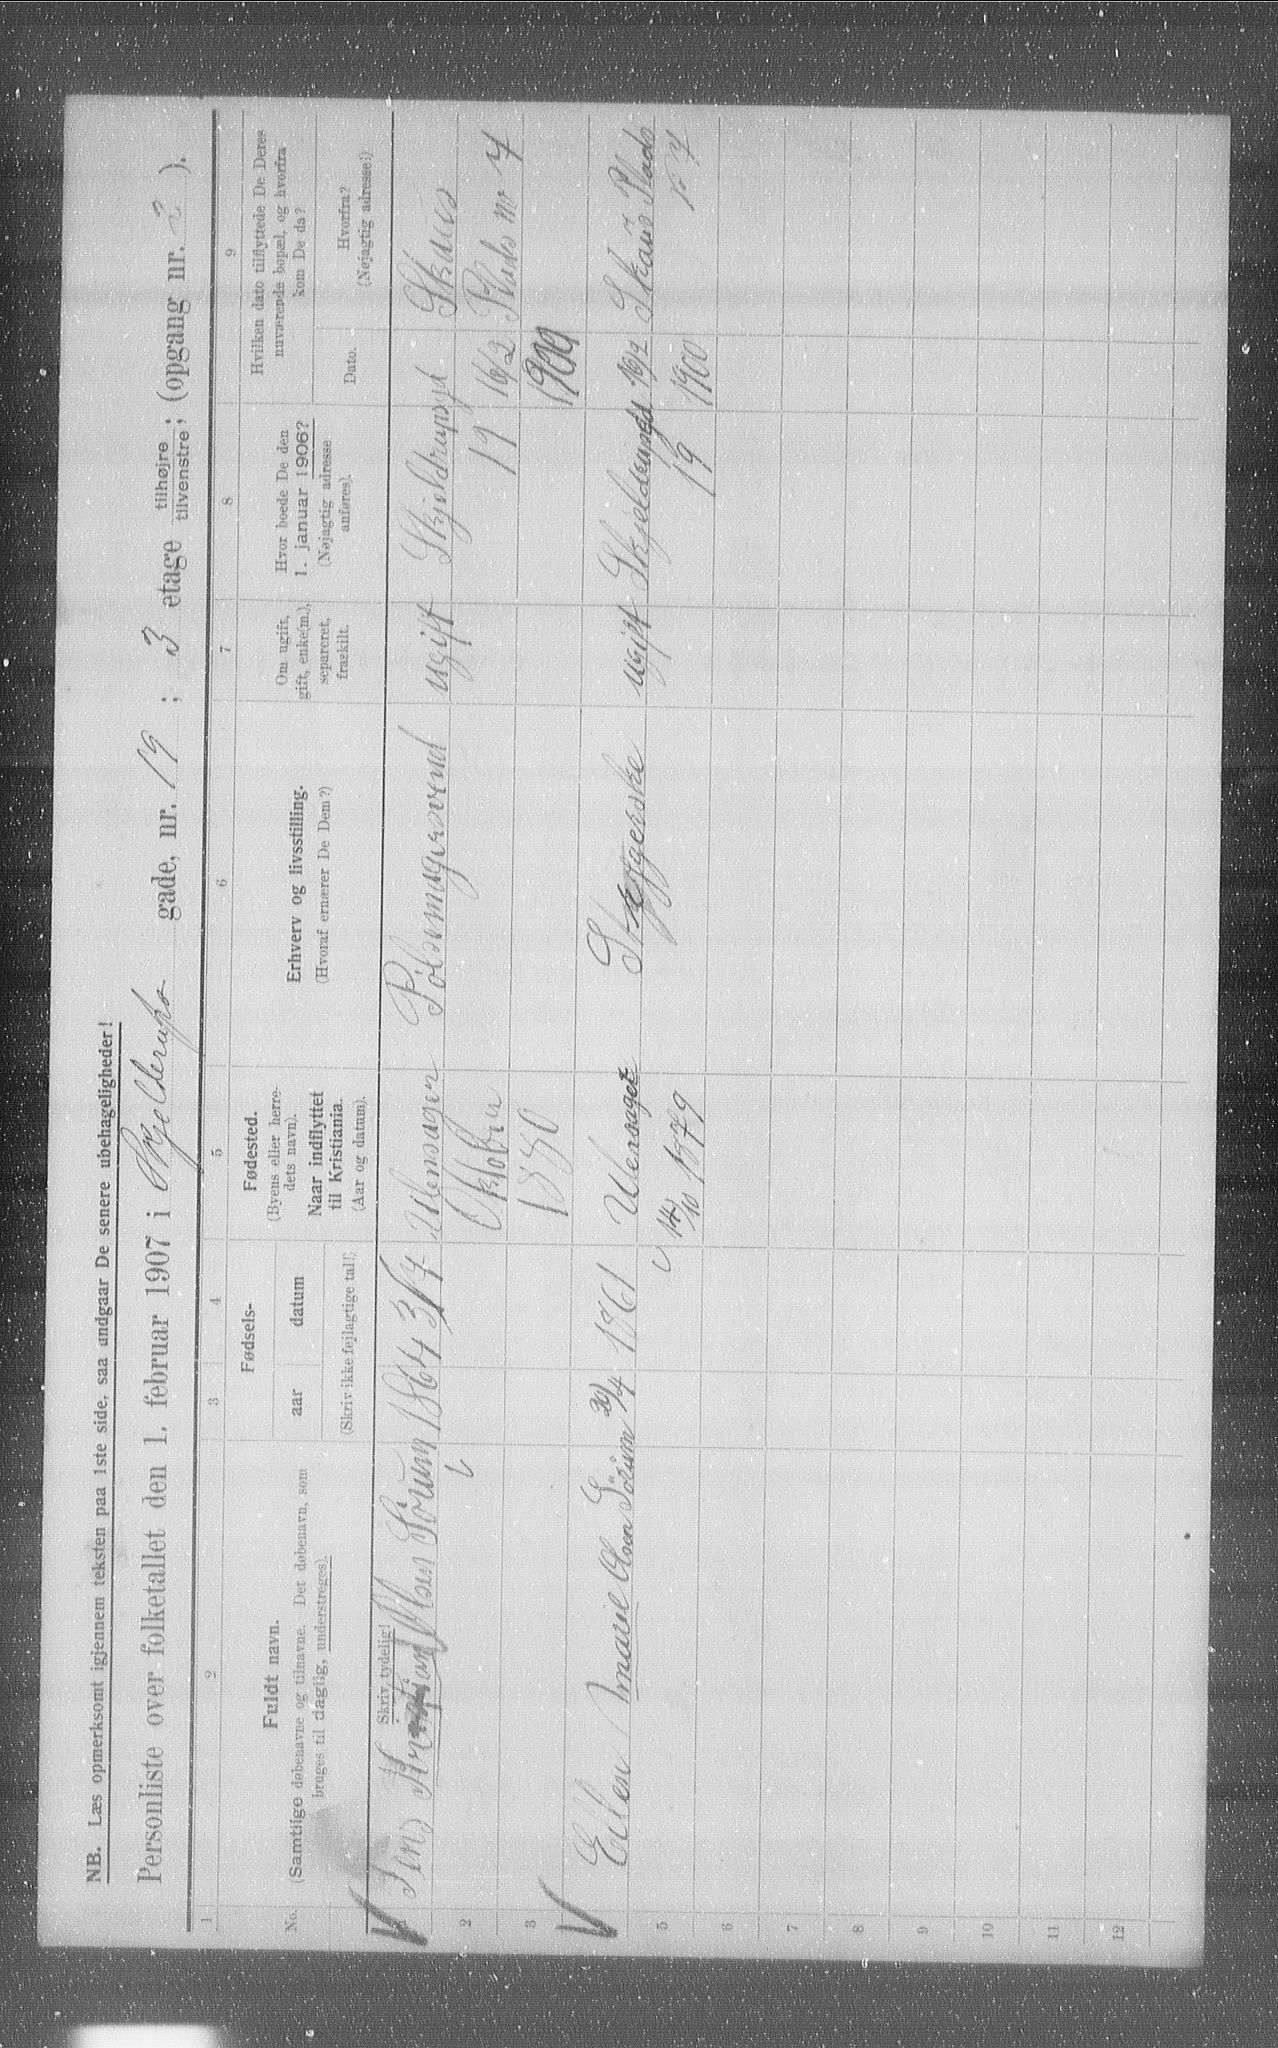 NB. Læs opmerksomt igjennem teksten paa 1ste side, saa undgaar De senere ubehageligheder!
Personliste over folketallet den 1. februar 1907 i Skjelderups gade, nr. 19; 3 etage tilhøjre tilvenstre; (opgang nr. 2).
1 2 3 4 5 6 7 8 9
No.
Fuldt navn.
(Samtlige døbenavne og tilnavne. Det døbenavn, som
bruges til daglig, understreges).
Fødsels-
aar datum
(Skriv ikke fejlagtige tal!)
Fødested.
(Byens eller herre-
dets navn).
Naar indflyttet
til Kristiania.
(Aar og datum).
Erhverv og livsstilling.
(Hvoraf ernærer De Dem?)
Om ugift,
gift, enke(m.),
separeret,
fraskilt.
Hvor boede De den
1. januar 1906?
(Nøjagtig adresse
anføres).
Hvilken dato tilflyttede De Deres
nuværende bopæl, og hvorfra
kom De da?
Dato.
Hvorfra?
(Nøjagtig adresse!)
Skriv tydelig!
1 Jens Kristian Olsen Sörum 1864 3/7 Ulensager Pölsemagersvend ugift Skjeldrupgd
2 Oktober 19 16/2 Plads no 7
3 1880 1900
Ellen Marie Olsen Sörum 20/4 1861 Ulensaget Strygerske ugift Skjelderupgd 16/2 Skaus Plads
5 14/10 1879 19 1900 no 7
6
7
8
9
10
11
12